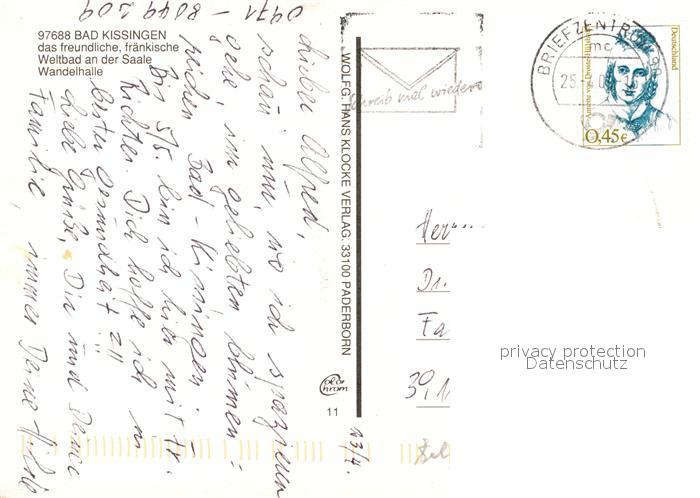 0971 - 8049 209
97688 BAD KISSINGEN
das freundliche, fränkische
Weltbad an der Saale
Wandelhalle
Lieber Alfred,
schau nur, wo ich spazieren
gehe, im geliebten blumen=
reichen Bad-Kissingen.
Bis 5/5. bin ich hier mit Fr.
Richter. Dich hoffe ich in
bester Gesundheit!!
Liebe Grüße, Dir und Deiner
Familie, immer Deine
WOLFG. HANS KLOCKE VERLAG, 33100 PADERBORN
Color
chrom
11
23/4.
Schreib mal wieder
BRIEFZENTRUM
mc
25.
Deutschland
0,45€
Dr.
privacy protection
Datenschutz